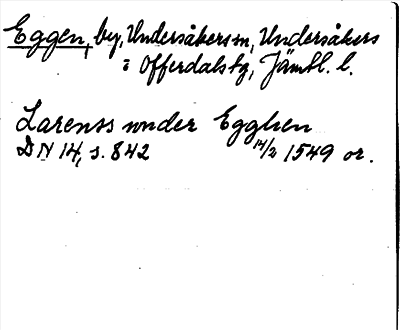 Eggen, by, Undersåkers sn, Undersåkers
o Offerdals tg, Jämtl. l.
Larenss wnder Egghen
DN 14, s. 842 14/2 1549 or.